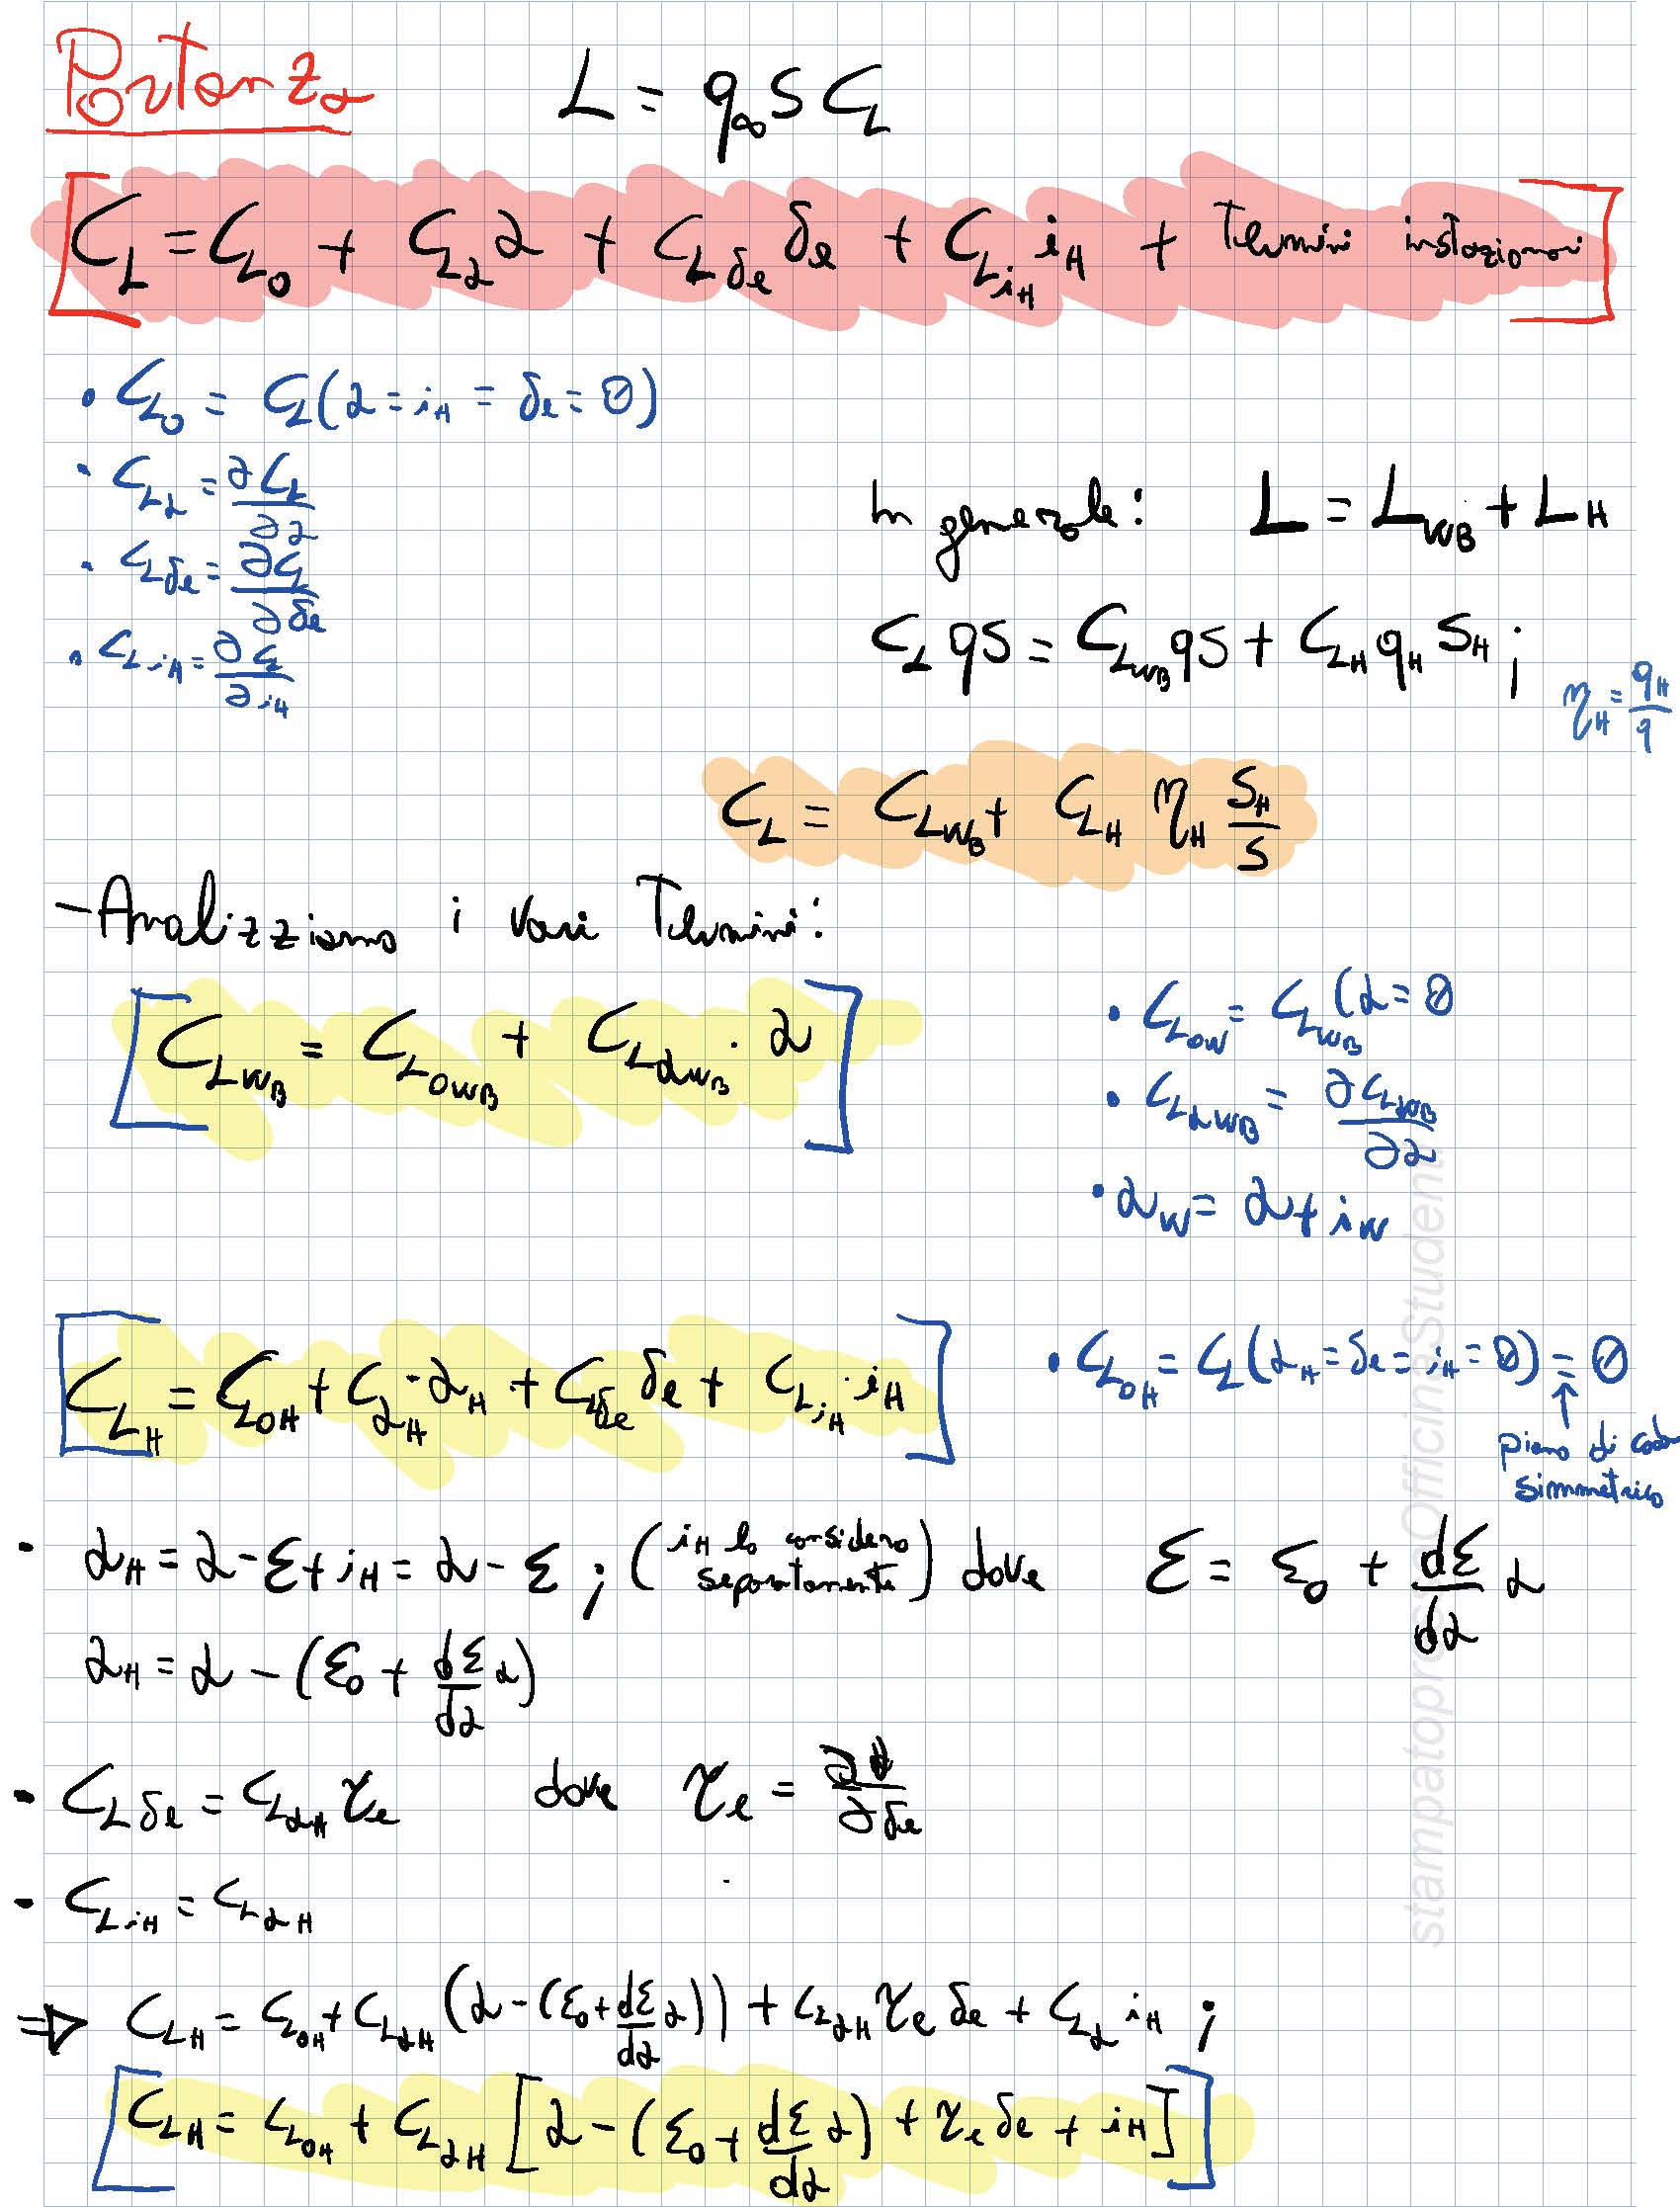 Portanza L = q∞ S C_L
[C_L = C_L0 + C_Lα α + C_Lδe δe + C_LiH i_H + Termini instazionari]
• C_L0 = C_L(α = i_H = δe = 0)
• C_Lα = ∂C_L/∂α
In generale: L = L_WB + L_H
• C_Lδe = ∂C_L/∂δe
C_L qS = C_LWB qS + C_LH q_H S_H ;
• C_LiH = ∂C_L/∂i_H
η_H = q_H/q
C_L = C_LWB + C_LH η_H S_H/S
- Analizziamo i vari Termini:
[C_LWB = C_L0WB + C_LαWB · α]
• C_L0W = C_LWB (α = 0
• C_LαWB = ∂C_LαWB/∂α
• α_W = α + i_W
[C_LH = C_L0H + C_αH · α_H + C_Lδe δe + C_LiH · i_H]
• C_L0H = C_L(α_H = δe = i_H = 0) = 0
↑
piano di coda
simmetrico
• α_H = α - ε + i_H = α - ε ; (i_H lo considero separatamente) dove ε = ε0 + dε/dα α
α_H = α - (ε0 + dε/dα α)
• C_Lδe = C_LαH τe dove τe = ∂α/∂δe
• C_LiH = C_LαH
⇒ C_LH = C_L0H + C_LαH (α - (ε0 + dε/dα α)) + C_LαH τe δe + C_Lα i_H ;
[C_LH = C_L0H + C_LαH [α - (ε0 + dε/dα α) + τe δe + i_H]]
stampatopressoOfficinaStudenti